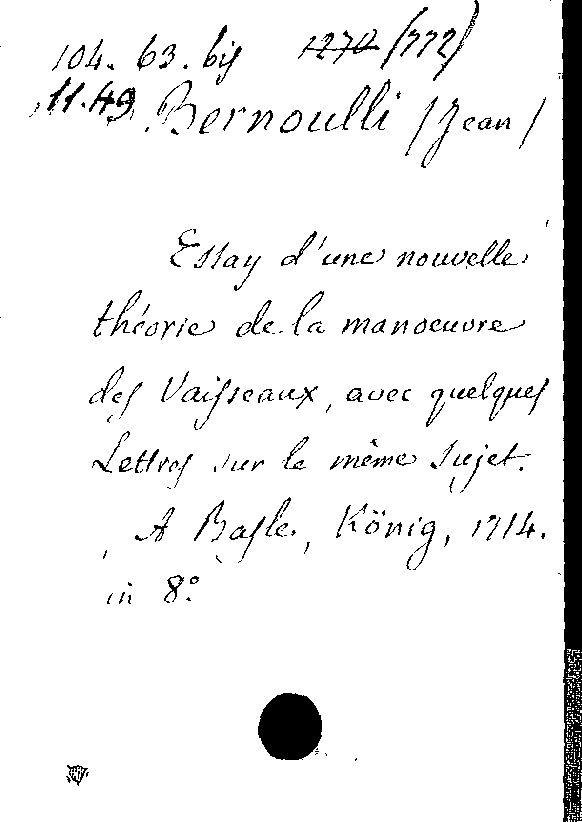 104. 63. bis 1270 (772)
11.49 Bernoulli (Jean)
Essay d'une nouvelle
théorie de la manoeuvre
des Vaisseaux, avec quelques
Lettres sur le même sujet.
A Basle, König, 1714.
in 8º